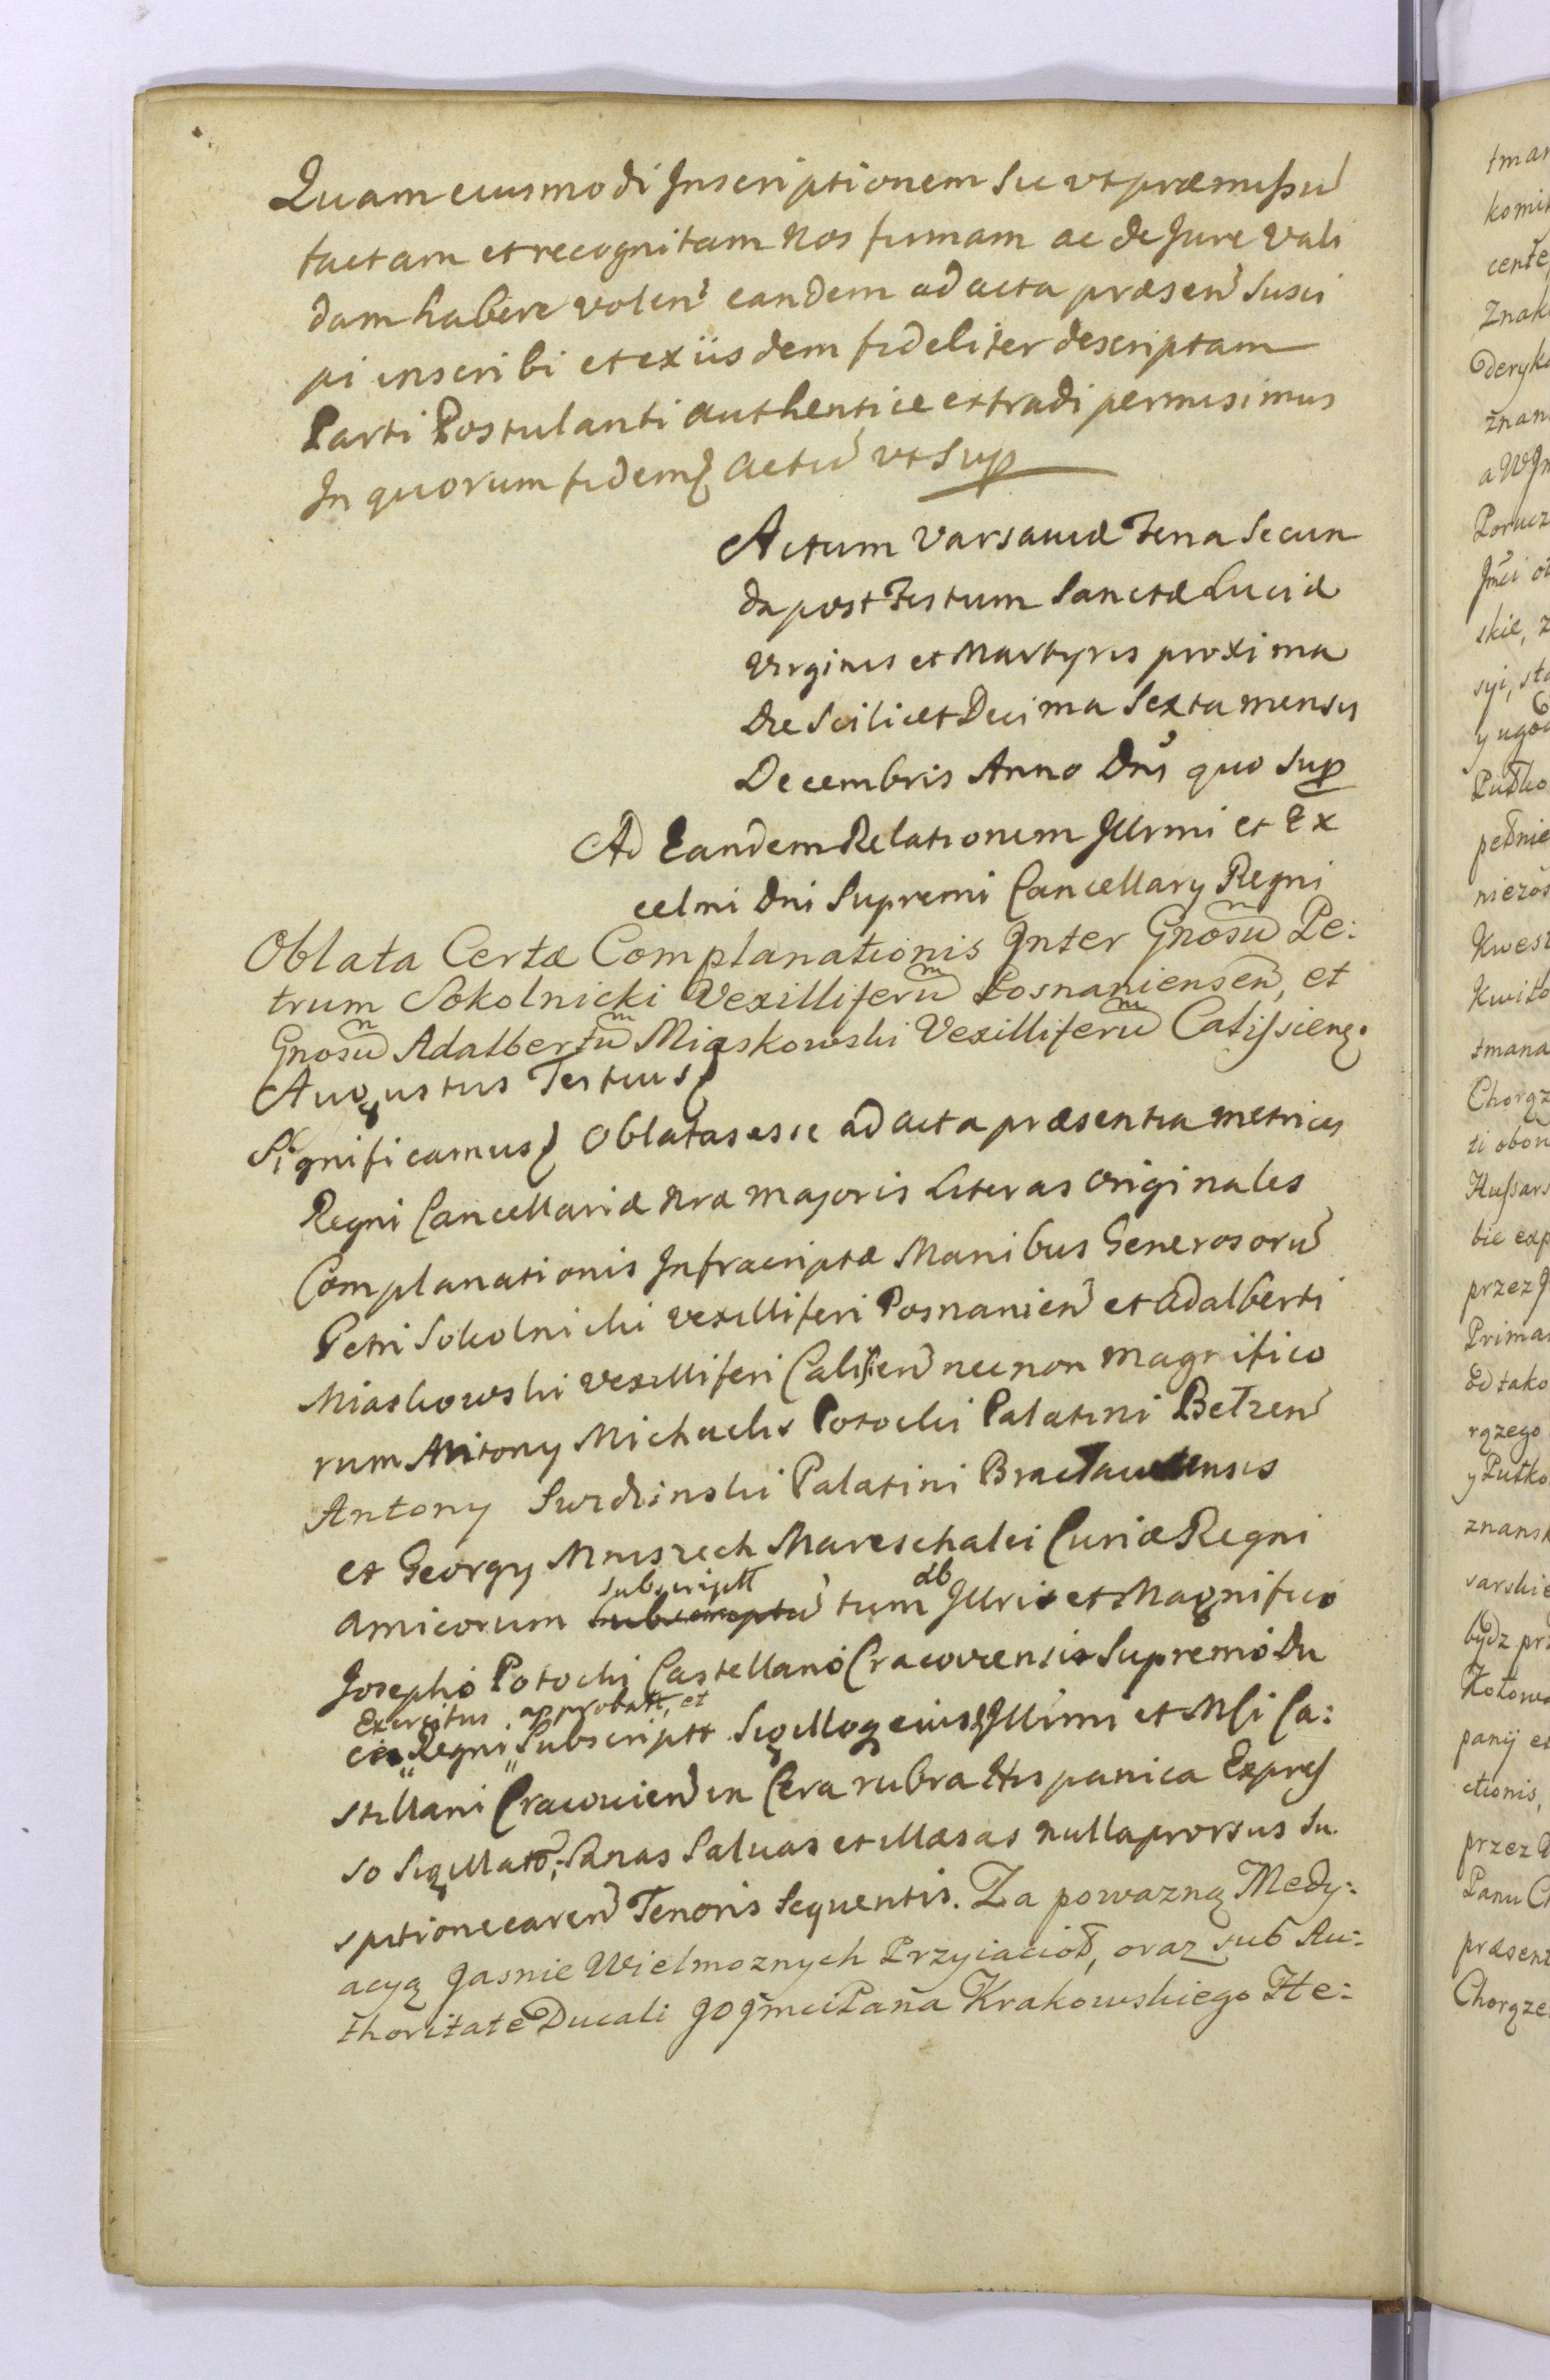 Quam eiusmodi Inscriptionem sic ut præmissũ
factam et recognitam Nos firmam ac de Jure vali
dam habere volen̄ eandem ad acta præsen̄ susci
pi inscribi et ex iisdem fideliter descriptam
Parti Postulanti authentice extradi permisimus
In quorum fidem Actũ ut sup
Actum Varsaviæ Feria Secun
da post Festum Sanctæ Luciæ
Virginis et Martyris proxima
Die Scilicet Decima Sexta mensis
Decembris Anno Dni quo sup
Ad Eandem Relationem Illrmi et Ex
celmi Dni Supremi Cancellary Regni
Oblata Certæ Complanationis Inter Gnosũ Pe:
trum Sokolnicki Vexilliferũ Posnaniensem̃, et
Gnosũ Adalbertũ Miaskowski Vexilliferũ Calissien.
Augustus Tertius
Significamus Oblatas esse ad acta præsentia metrices
Regni Cancellariæ Nræ majoris Literas originales
Complanationis Infrascriptæ Manibus Generosorũ
Petri Sokolnicki vexilliferi Posnanien̄ et Adalberti
Miaskowski vexilliferi Calissien̄ nec non magnifico
rum Antony Michaelis Potocki Palatini Bełzen̄
Antony Swidzinski Palatini Bracławiensis
et Georgy Mniszech Mareschalci Curiæ Regni
subscriptt ab
amicorum subscriptũ tum Illris et Magnifico
Josepho Potocki Castellano Cracoviensis Supremo Du
Exercitus approbatt, et
ce Regni Subscriptt Sigilloq eius Illrmi et Mci Ca:
stellani Cracovien̄ in Cera rubra Hispanica Expres
so Sigillatō; Sanas Salvas et illæsas nulla prorsus su
spitione caren̄ Tenoris Sequentis. Za powazną Medy:
acyą Jasnie Wielmoznych Przyiacioł, oraz sub Au:
thoritate Ducali JoJmci Pana Krakowskiego He: